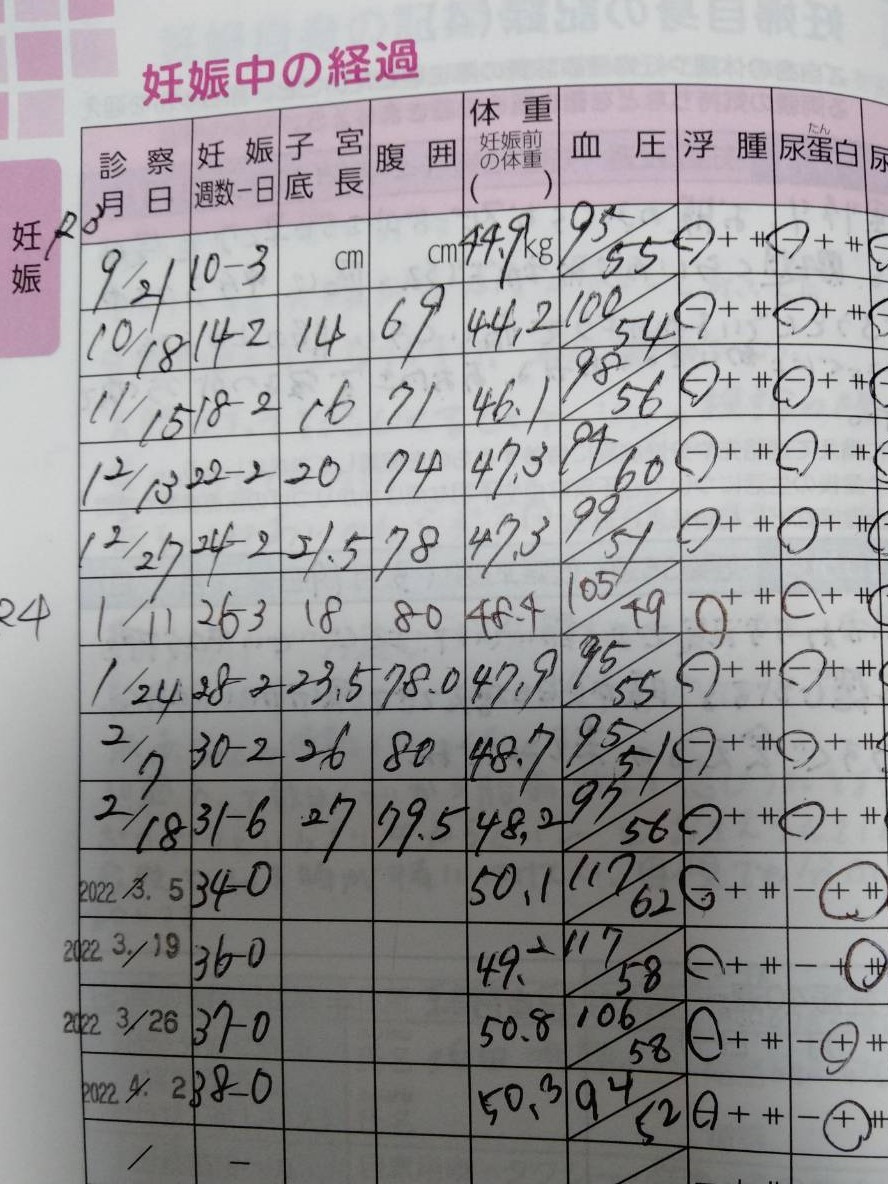 妊娠中の経過
妊娠
診察月日 妊娠週数一日 子宮底長 腹囲 体重 妊娠前の体重 ( ) 血圧 浮腫 尿蛋白たん 尿
9/21 10-3 cm cm 44.9kg 95/55 - + ⧺ - + ⧺
10/18 14-2 14 69 44.2 100/54 - + ⧺ - + ⧺
11/15 18-2 16 71 46.1 98/56 - + ⧺ - + ⧺
12/13 22-2 20 74 47.3 94/60 - + ⧺ - + ⧺
12/27 24-2 21.5 78 47.3 99/51 - + ⧺ - + ⧺
24
1/11 26-3 18 80 48.4 105/49 - + ⧺ - + ⧺
1/24 28-2 23.5 78.0 47.9 95/55 - + ⧺ - + ⧺
2/7 30-2 26 80 48.7 95/51 - + ⧺ - + ⧺
2/18 31-6 27 79.5 48.2 97/56 - + ⧺ - + ⧺
2022 3. 5 34-0 50.1 117/62 - + ⧺ - + ⧺
2022 3./19 36-0 49.2 117/58 - + ⧺ - + ⧺
2022 3/26 37-0 50.8 106/58 - + ⧺ - + ⧺
2022 4. 2 38-0 50.3 94/52 - + ⧺ - + ⧺
/ -